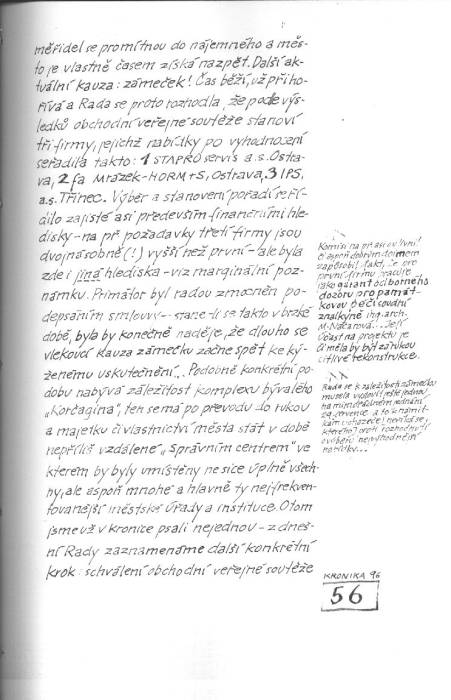 měřidel se promítnou do nájemného a měs-
to je vlastně časem získá nazpět. Další ak-
tuální kauza: zámeček! Čas běží, už přiho-
řívá a Rada se proto rozhodla, že podle výs-
ledků obchodní veřejné soutěže stanoví
tři firmy, jejichž nabídky po vyhodnocení
seřadila takto: 1 STAPRO servis a.s. Ostra-
va, 2 fa Mrázek-HORM+S, Ostrava, 3 IPS,
a.s. Třinec. Výběr a stanovení pořadí se ří-
dilo zajisté asi především finančními hle-
disky - na př. požadavky třetí firmy jsou
dvojnásobně (!) vyšší než první - ale byla
zde i jiná hlediska - viz marginální poz-
námku. Primátor byl radou zmocněn po-
depsáním smlouvy - stane-li se takto v brzké
době, byla by konečně naděje, že dlouho se
vlekoucí kauza zámečku začne spět ke ký-
ženému uskutečnění... Podobně konkrétní po-
dobu nabývá záležitost komplexu bývalého
„Korčagina", ten se má po převodu do rukou
a majetku či vlastnictví města stát v době
nepříliš vzdálené „Správním centrem" ve
kterém by byly umístěny ne sice úplně všech-
ny, ale aspoň mnohé a hlavně ty nejfrekven-
tovanější městské úřady a instituce. O tom
jsme už v kronice psali nejednou - z dneš-
ní Rady zaznamenáme další konkrétní
krok: schválení obchodní veřejné soutěže
Komisi na
či aspoň dobrým dojmem
zapůsobil fakt, že pro
první firmu pracuje
jako garant odborného
dozoru pro památ-
kovou péči soudní
znalkyně ing. arch.
M. Načarová... Její
účast na projektu je
či měla by být zárukou
citlivé rekonstrukce.
Rada se k záležitosti zámečku
musela vyslovit ještě jednou
na mimořádném jednání
24. července a to k námit-
kám uchazeče
kterého) proti rozhodnutí
o výběru nejvhodnější
nabídky...
KRONIKA 96
56